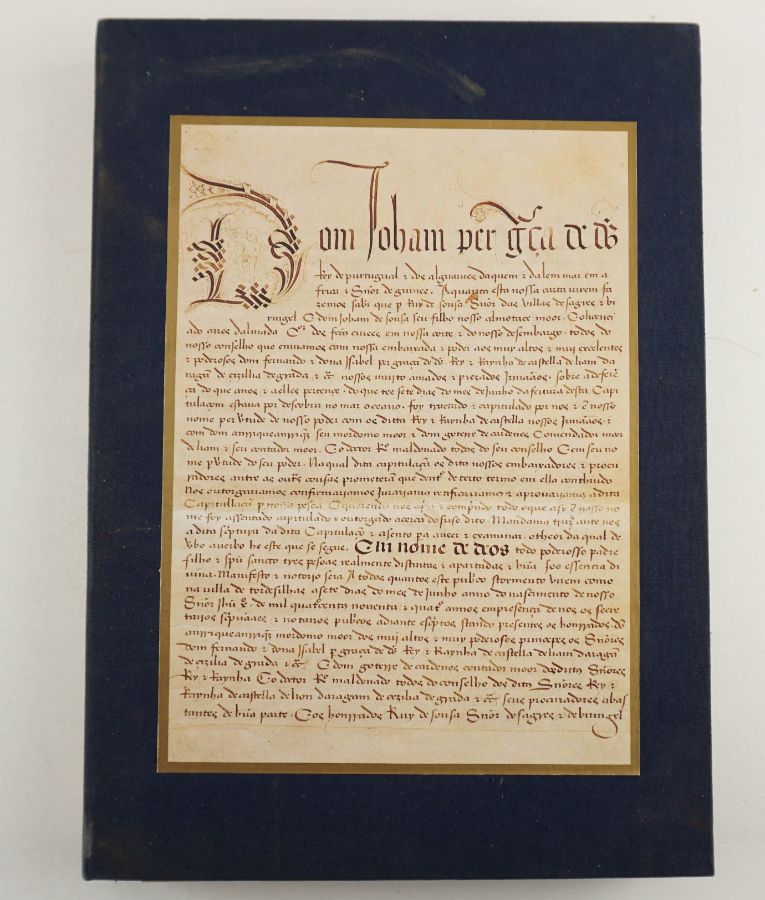 Dom Joham per g̃ça de d̃s
Rey de purtugual ⁊ dos alguarues daquem ⁊ dalem mar em a
frica ⁊ Sñor de guinee. A quantos esta nossa carta virem fa
zemos sabr que p Ruy de sousa Sñor das villas de sagres ⁊ bi
ringel E dom Joham de sousa seu filho nosso almotace moor. Eo
ado ayres dalmada em nossa corte ⁊ do nosso desembargo. todos do
nosso conselho que enuiamos com nossa embaixada ⁊ poder aos muy altos ⁊ muy excelentes
⁊ poderosos dom fernando ⁊ dona Isabel per graça de d̃s Rey ⁊ Raynha de castella de liam da
ragã de cizilia de grada ⁊ cc̃ nossos muito amados ⁊ prezados Irmãaos. sobre a deferẽ
ça do que a nos ⁊ a elles pertençe. do que tee sete dias do mes de Junho da feitura desta Capi
tulaçom estaua por descobrir no mar oceano. foy trautado ⁊ capitulado por nos ⁊ ẽ nosso
nome per vtude de nosso poder com os dittos Rey ⁊ Raynha de castella nossos Irmãaos. ⁊
com dom anrriqueanrriqz̃ seu mordomo moor ⁊ dom goterre de cardenes Comendador moor
de liam ⁊ seu contador moor. E o doctor Ro maldonado todos do seu conselho E em seu no
me p vtude do seu poder. Na qual dita capitulaçã os ditos nossos embaixadores ⁊ procu
radores antre as outs cousas prometerã que dentro de certo termo em ella contheudo
Nos outorgariamos confirmariamos Jurariamos ratificariamos ⁊ aprouariamos a dita
Capitullaçã p nossa pesoa E querendo nos ⁊ comprindo todo o que asy ẽ nosso no
me foy assentado capitulado ⁊ outorgado acerca do suso dito. Mandamos trazr ante nos
a dita scriptura da dita Capitulaçã ⁊ asento pa a veer ⁊ examinar. o theor da qual de
vbo a verbo he este que se segue. Em nome de deos todo poderoso padre
filho ⁊ sp̃u sancto tres pesoas realmente distintas ⁊ apartadas ⁊ hũa soo essencia di
uina. Manifesto ⁊ notorio seia A todos quantos este pubco stormento virem como
na villa de tordesilhas a sete dias do mes de Junho anno do nasçimento de nosso
Sñor Jhũ xo. de mil quatrocentos nouenta ⁊ quatro annos em presença de nos os secre
tarios scpuaães ⁊ notarios pubcos adiante escptos stando presentes os honrrados dõ
anrriqueanrriqz̃ mordomo moor dos muy altos ⁊ muy poderosos principes os Sñores
dom fernando ⁊ dona Isabel p graça de d̃s Rey ⁊ Raynha de castella de liam daragã
de çizilia de grada ⁊ cc̃ E dom goterre de cardenes contador moor dos ditos Sñores
Rey ⁊ Raynha E o doctor Ro maldonado todos do conselho dos ditos Sñores Rey ⁊
Raynha de castella de liom daragam de cezilia de grada ⁊ cc̃ seus procuradores abas
tantes de hũa parte. E os honrrados Ruy de sousa Sñor de sagres ⁊ de biringel